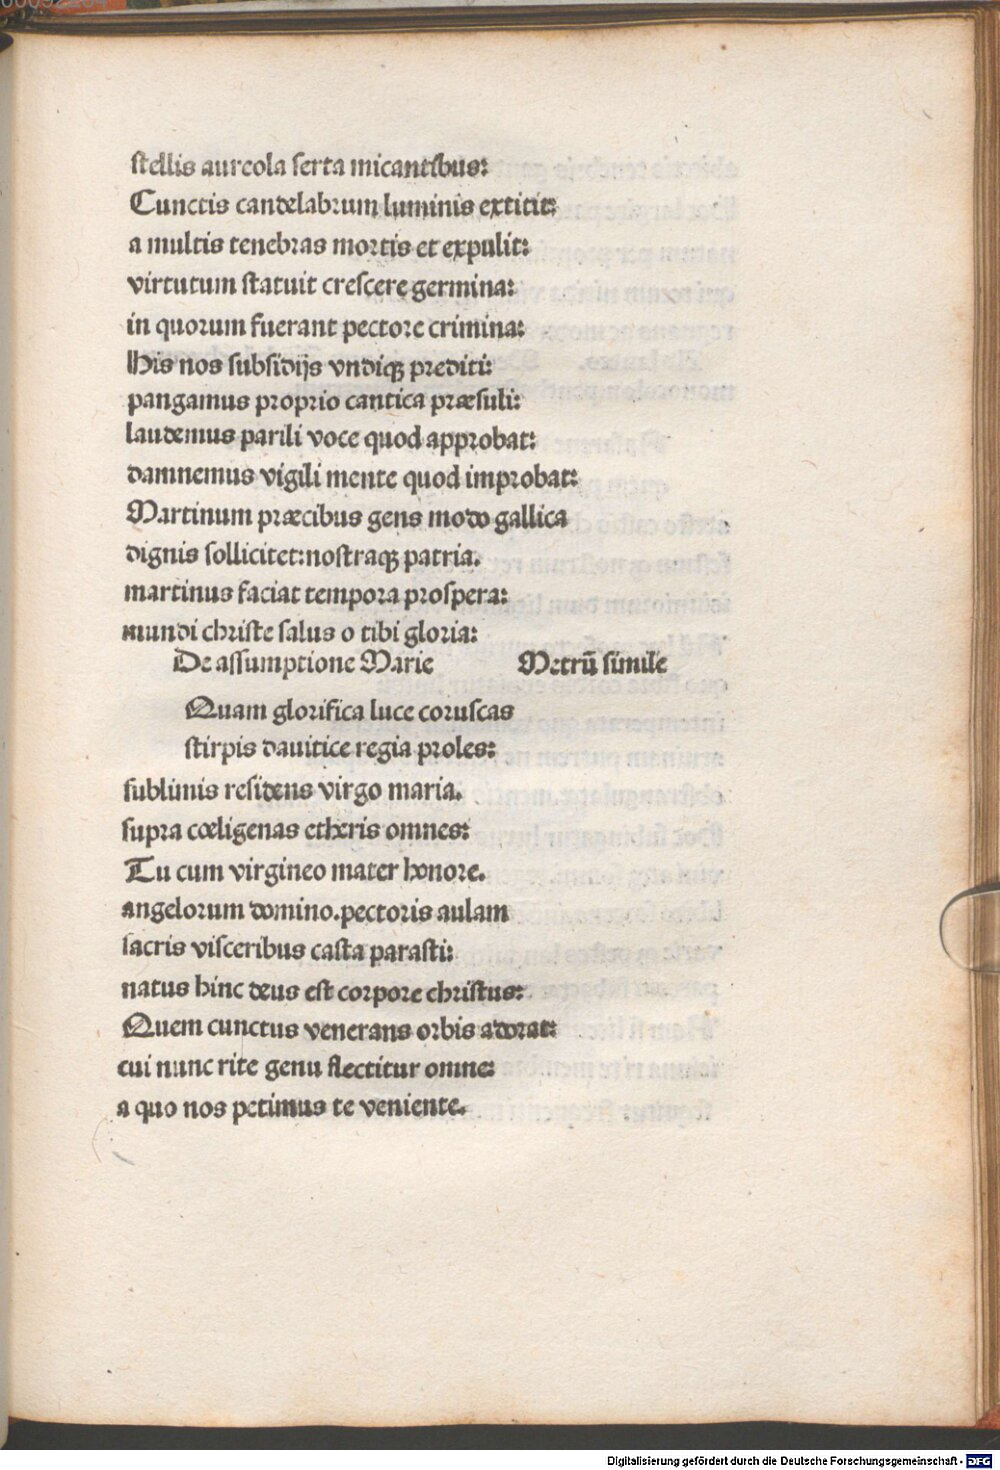 ſtellis aureola ſerta micantibus:
Cunctis candelabrum luminis extitit:
a multis tenebras mortis et expulit:
virtutum ſtatuit creſcere germina:
in quorum fuerant pectore crimina:
His nos ſubſidijs vndiqꝫ prediti:
pangamus proprio cantica præſuli:
laudemus parili voce quod approbat:
damnemus vigili mente quod improbat:
Martinum præcibus gens modo gallica
dignis ſollicitet:noſtraqꝫ patria.
martinus faciat tempora proſpera:
mundi chriſte ſalus o tibi gloria:
De aſſumptione Marie Metrũ ſimile
Quam glorifica luce coruſcas
ſtirpis dauitice regia proles:
ſublimis reſidens virgo maria.
ſupra cœligenas etheris omnes:
Tu cum virgineo mater honore.
angelorum domino.pectoris aulam
ſacris viſceribus caſta paraſti:
natus hinc deus eſt corpore chriſtus:
Quem cunctus venerans orbis adorat:
cui nunc rite genu flectitur omne:
a quo nos petimus te veniente.
Digitalisierung gefördert durch die Deutsche Forschungsgemeinschaft - DFG